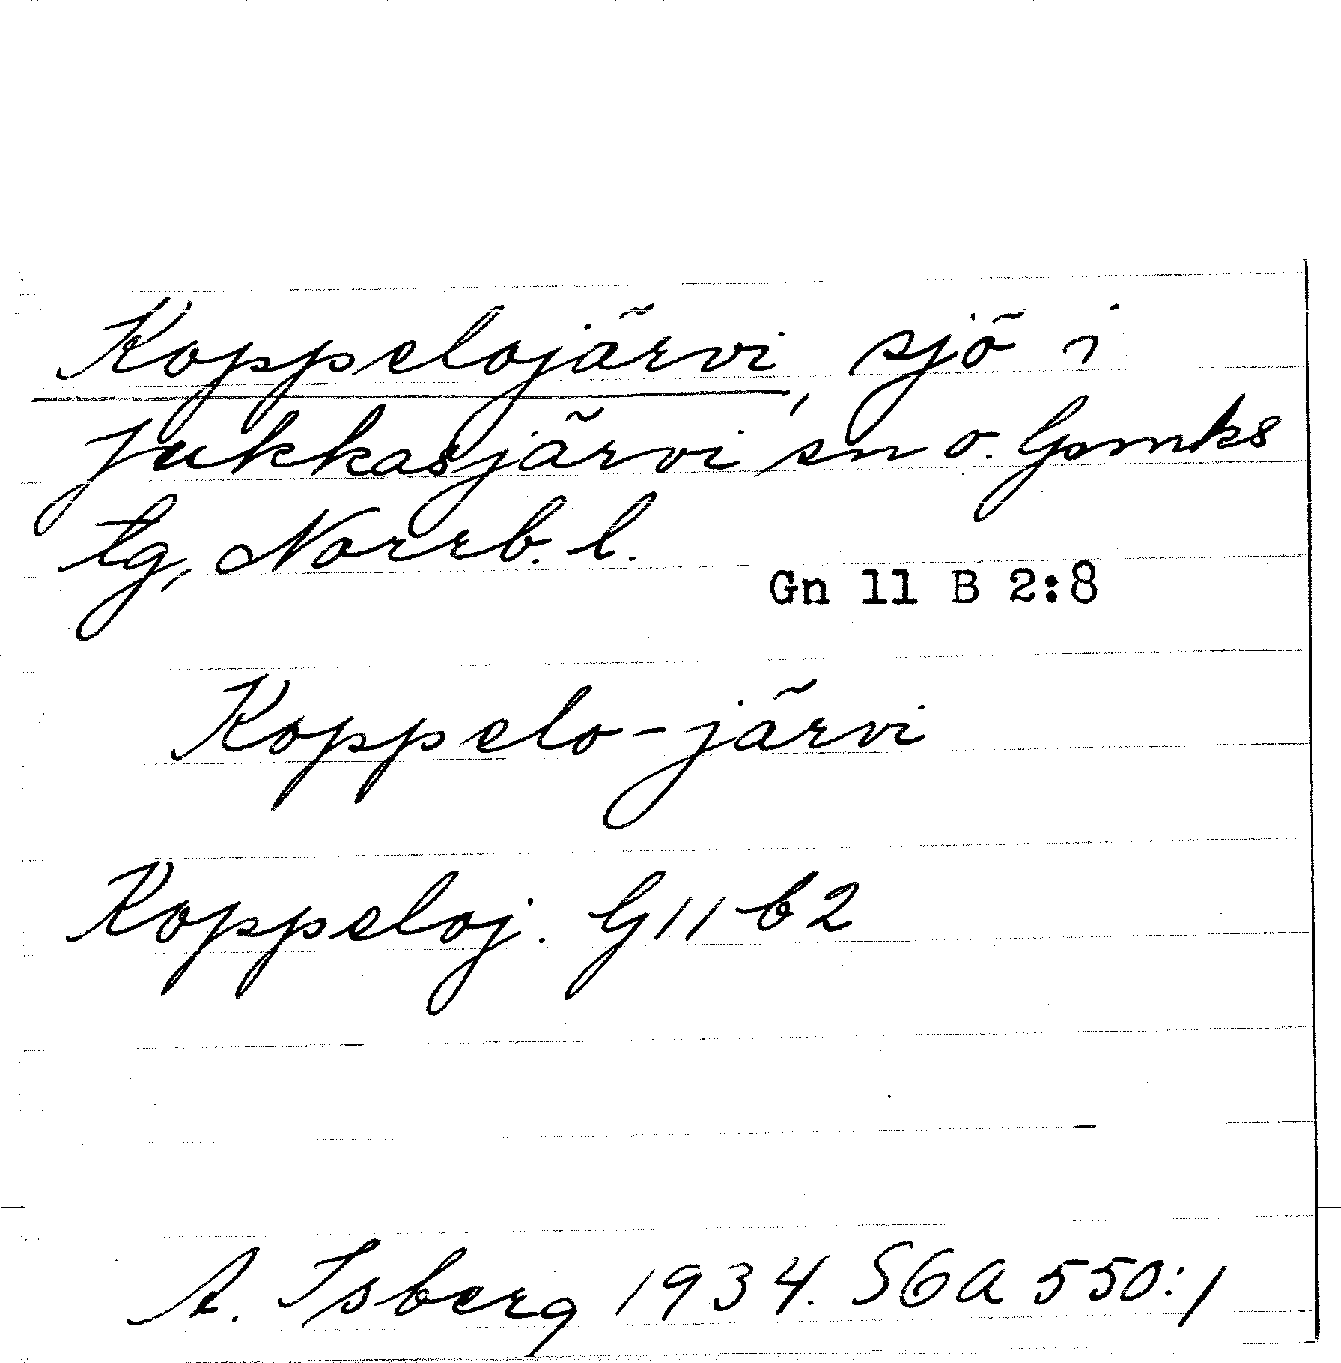 Koppelojärvi, sjö i
Jukkasjärvi sn o. lpmks
tg, Norrb. l.
Gn 11 B 2:8
Koppelo-järvi
Koppeloj. G11 b2
A. Isberg 1934. SGA 550:1